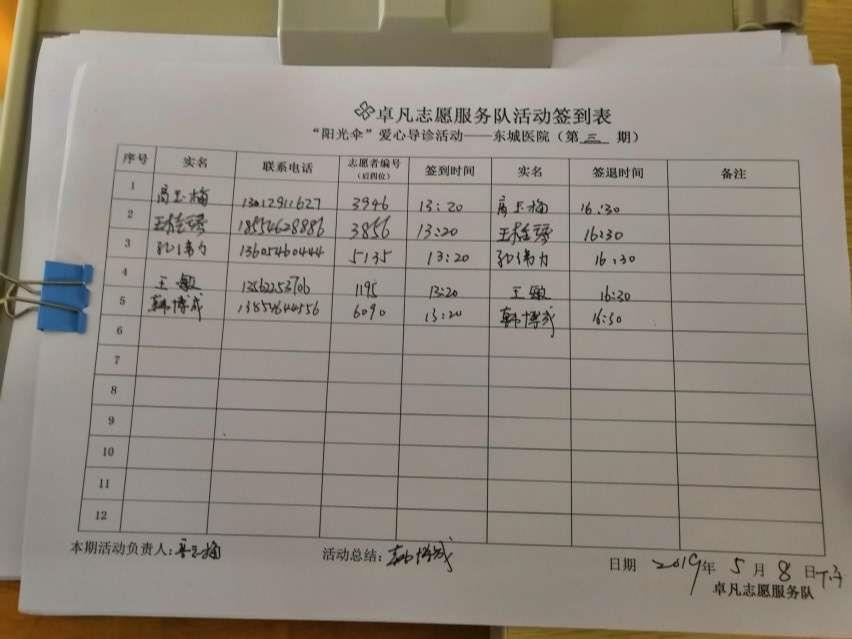 卓凡志愿服务队活动签到表
“阳光伞”爱心导诊活动——东城医院（第 三 期）
序号 实名 联系电话 志愿者编号（后四位） 签到时间 实名 签退时间 备注
1 高玉梅 13012911627 3946 13:20 高玉梅 16:30
2 18554628886 3856 13:20 16:30
3 孔伟力 13605460444 5135 13:20 孔伟力 16:30
4 王敏 13562253706 1195 13:20 王敏 16:30
5 韩博成 13854644556 6090 13:20 韩博成 16:30
6
7
8
9
10
11
12
本期活动负责人： 活动总结：韩博成 日期 2019年 5 月 8 日下午
卓凡志愿服务队